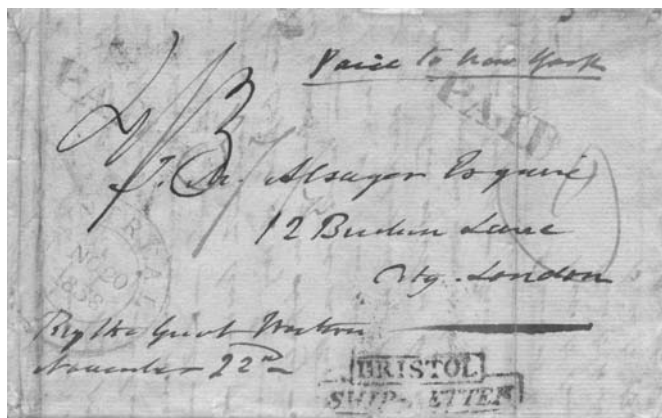 Paid to New York
PAID
PAID
T. M. Alsager Esquire
12 Birchin Lane
City London
MONTREAL
NO 20
1838
By the Great Western
November 22nd
BRISTOL
SHIP LETTER